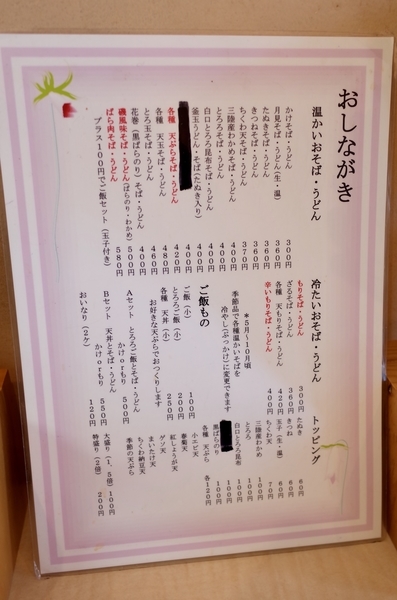 おしながき
温かいおそば・うどん
かけそば・うどん 300円
月見そば・うどん(生・温) 360円
たぬきそば・うどん 360円
きつねそば・うどん 360円
ちくわ天そば・うどん 370円
三陸産わかめそば・うどん 400円
とろろそば・うどん 400円
白口とろろ昆布そば・うどん 400円
釜玉うどん・そば(たぬき入り) 400円
400円
各種 天ぷらそば・うどん 420円
各種 天玉そば・うどん 480円
とろ玉そば・うどん 460円
花巻(黒ばらのり)そば・うどん
磯風味そば・うどん(ばらのり・わかめ) 500円
ばら肉そば・うどん 580円
プラス100円でご飯セット(玉子付き)
冷たいおそば・うどん
もりそば・うどん 300円
ざるそば・うどん 360円
各種 天もりそば・うどん 420円
辛いもりそば・うどん 400円
*5月~10月頃
季節品で各種温かいそばを
冷やし(ぶっかけ)に変更できます
ご飯もの
ご飯(小) 100円
とろろご飯(小) 200円
各種 天丼(小) 250円
お好きな天ぷらでおつくりします
Aセット とろろご飯とそば・うどん
かけorもり 500円
Bセット 天丼とそば・うどん
かけorもり 550円
おいなり(2ケ) 120円
トッピング
たぬき 60円
きつね 60円
玉子(生・温) 60円
ちくわ天 70円
三陸産わかめ 100円
とろろ 100円
白口とろろ昆布 100円
100円
黒ばらのり 100円
各種 天ぷら 各120円
小エビ天
春菊天
紅しょうが天
ゲソ天
まいたけ天
ちくわ納豆天
季節の天ぷら
大盛り(1.5倍) 100円
特盛り(2倍) 200円